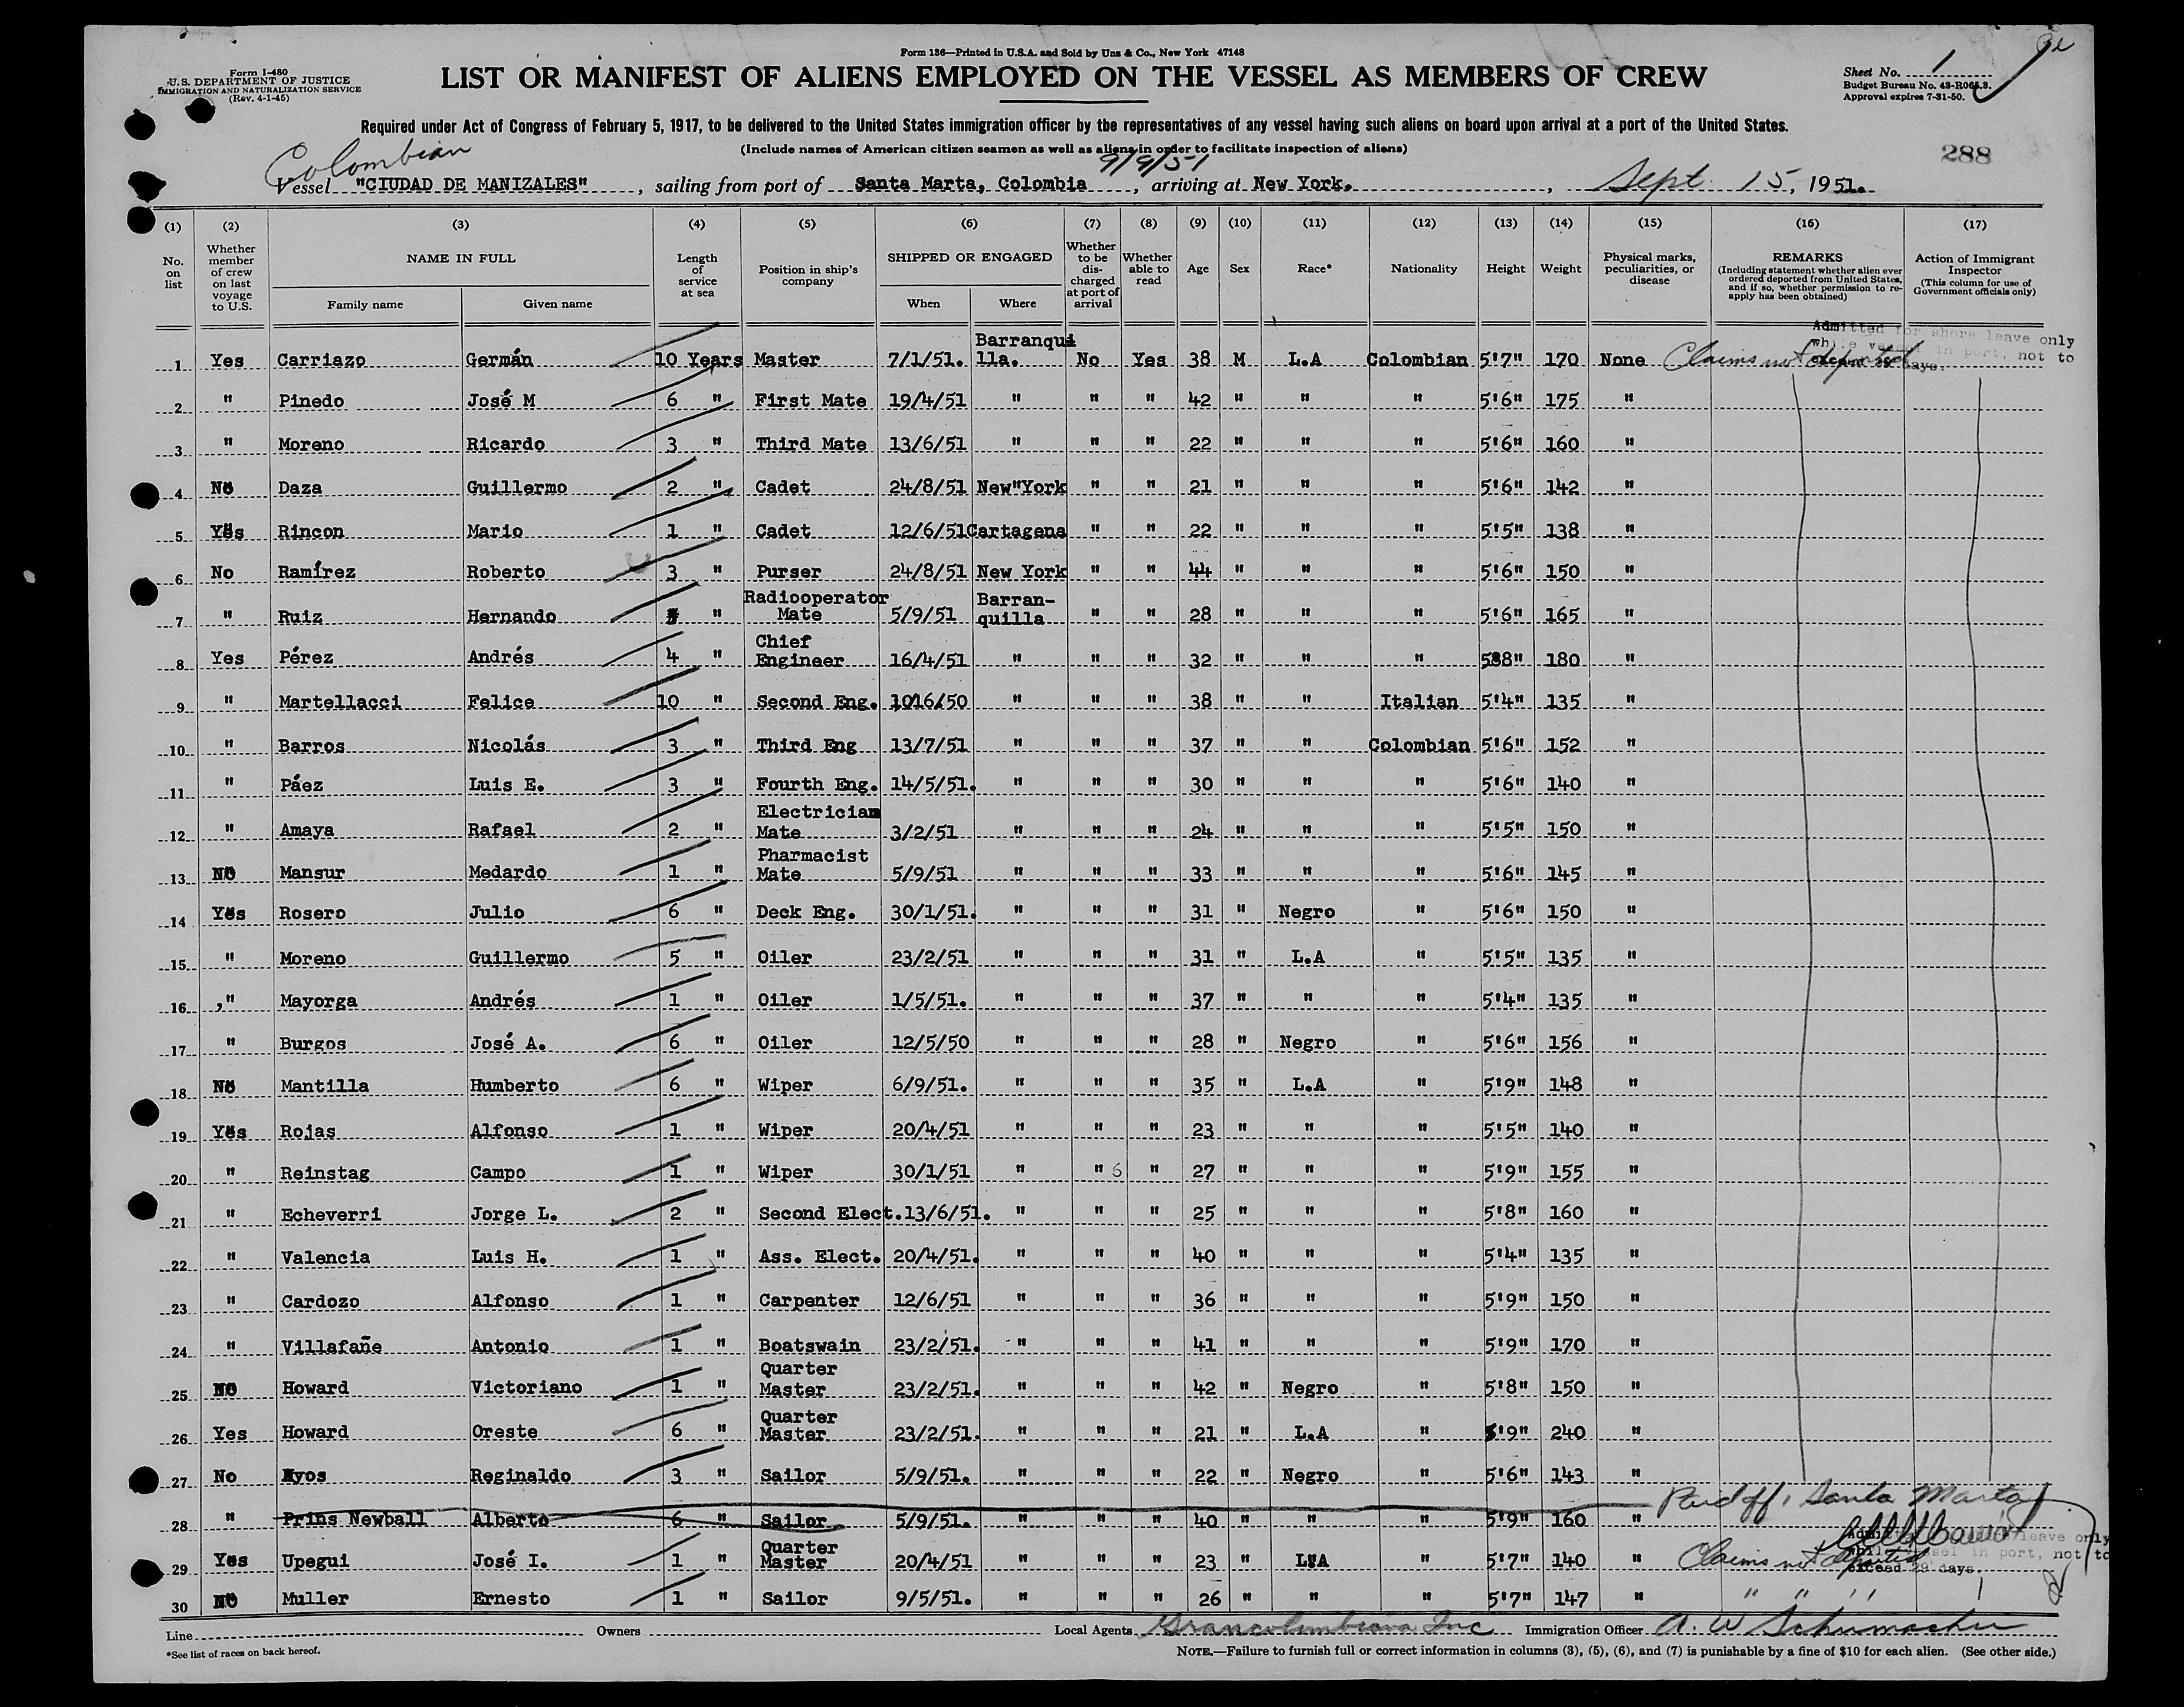 Form 136—Printed in U.S.A. and Sold by Unz & Co., New York 47148
Form I-480
U.S. DEPARTMENT OF JUSTICE
IMMIGRATION AND NATURALIZATION SERVICE
(Rev. 4-1-45)
LIST OR MANIFEST OF ALIENS EMPLOYED ON THE VESSEL AS MEMBERS OF CREW
Sheet No. 1
Budget Bureau No. 43-R065.3.
Approval expires 7-31-50.
Required under Act of Congress of February 5, 1917, to be delivered to the United States immigration officer by the representatives of any vessel having such aliens on board upon arrival at a port of the United States.
(Include names of American citizen seamen as well as aliens in order to facilitate inspection of aliens)
288
Colombian 9/9/51
Vessel "CIUDAD DE MANIZALES", sailing from port of Santa Marta, Colombia, arriving at New York., Sept. 15, 1951.
(1) (2) (3) (4) (5) (6) (7) (8) (9) (10) (11) (12) (13) (14) (15) (16) (17)
No. on list
Whether member of crew on last voyage to U.S.
NAME IN FULL
Family name Given name
Length of service at sea
Position in ship's company
SHIPPED OR ENGAGED
When Where
Whether to be discharged at port of arrival
Whether able to read
Age Sex Race* Nationality Height Weight
Physical marks, peculiarities, or disease
REMARKS
(Including statement whether alien ever ordered deported from United States, and if so, whether permission to reapply has been obtained)
Action of Immigrant Inspector
(This column for use of Government officials only)
Admitted for shore leave only
while vessel in port, not to
exceed 29 days.
1 Yes Carriazo Germán 10 Years Master 7/1/51. Barranquilla. No Yes 38 M L.A Colombian 5'7" 170 None Claims not deported
2 " Pinedo José M 6 " First Mate 19/4/51 " " " 42 " " " 5'6" 175 "
3 " Moreno Ricardo 3 " Third Mate 13/6/51 " " " 22 " " " 5'6" 160 "
4 No Daza Guillermo 2 " Cadet 24/8/51 New York " " 21 " " " 5'6" 142 "
5 Yes Rincon Mario 1 " Cadet 12/6/51 Cartagena " " 22 " " " 5'5" 138 "
6 No Ramírez Roberto 3 " Purser 24/8/51 New York " " 44 " " " 5'6" 150 "
7 " Ruiz Hernando " Radiooperator Mate 5/9/51 Barran-quilla " " 28 " " " 5'6" 165 "
8 Yes Pérez Andrés 4 " Chief Engineer 16/4/51 " " " 32 " " " 5'8" 180 "
9 " Martellacci Felice 10 " Second Eng. 10/6/50 " " " 38 " " Italian 5'4" 135 "
10 " Barros Nicolás 3 " Third Eng 13/7/51 " " " 37 " " Colombian 5'6" 152 "
11 " Páez Luis E. 3 " Fourth Eng. 14/5/51. " " " 30 " " " 5'6" 140 "
12 " Amaya Rafael 2 " Electrician Mate 3/2/51 " " " 24 " " " 5'5" 150 "
13 NO Mansur Medardo 1 " Pharmacist Mate 5/9/51 " " " 33 " " " 5'6" 145 "
14 Yes Rosero Julio 6 " Deck Eng. 30/1/51. " " " 31 " Negro " 5'6" 150 "
15 " Moreno Guillermo 5 " Oiler 23/2/51 " " " 31 " L.A " 5'5" 135 "
16 " Mayorga Andrés 1 " Oiler 1/5/51. " " " 37 " " " 5'4" 135 "
17 " Burgos José A. 6 " Oiler 12/5/50 " " " 28 " Negro " 5'6" 156 "
18 No Mantilla Humberto 6 " Wiper 6/9/51. " " " 35 " L.A " 5'9" 148 "
19 Yes Rojas Alfonso 1 " Wiper 20/4/51 " " " 23 " " " 5'5" 140 "
20 " Reinstag Campo 1 " Wiper 30/1/51 " " 6 " 27 " " " 5'9" 155 "
21 " Echeverri Jorge L. 2 " Second Elect. 13/6/51. " " " 25 " " " 5'8" 160 "
22 " Valencia Luis H. 1 " Ass. Elect. 20/4/51. " " " 40 " " " 5'4" 135 "
23 " Cardozo Alfonso 1 " Carpenter 12/6/51 " " " 36 " " " 5'9" 150 "
24 " Villafañe Antonio 1 " Boatswain 23/2/51. " " " 41 " " " 5'9" 170 "
25 NO Howard Victoriano 1 " Quarter Master 23/2/51. " " " 42 " Negro " 5'8" 150 "
26 Yes Howard Oreste 6 " Quarter Master 23/2/51. " " " 21 " L.A " 5'9" 240 "
27 No Reginaldo 3 " Sailor 5/9/51. " " " 22 " Negro " 5'6" 143 "
28 " Prins Newball Alberto 6 " Sailor 5/9/51. " " " 40 " " " 5'9" 160 " Paid off, Santa Marta
Admitted for shore leave only
while vessel in port, not to
exceed 29 days.
29 Yes Upegui José I. 1 " Quarter Master 20/4/51 " " " 23 " L.A " 5'7" 140 " Claims not deported
30 NO Muller Ernesto 1 " Sailor 9/5/51. " " " 26 " " " 5'7" 147 " " " "
Line Owners Local Agents Grancolombiana Inc Immigration Officer A. W Schumacher
*See list of races on back hereof.
NOTE.—Failure to furnish full or correct information in columns (3), (5), (6), and (7) is punishable by a fine of $10 for each alien. (See other side.)